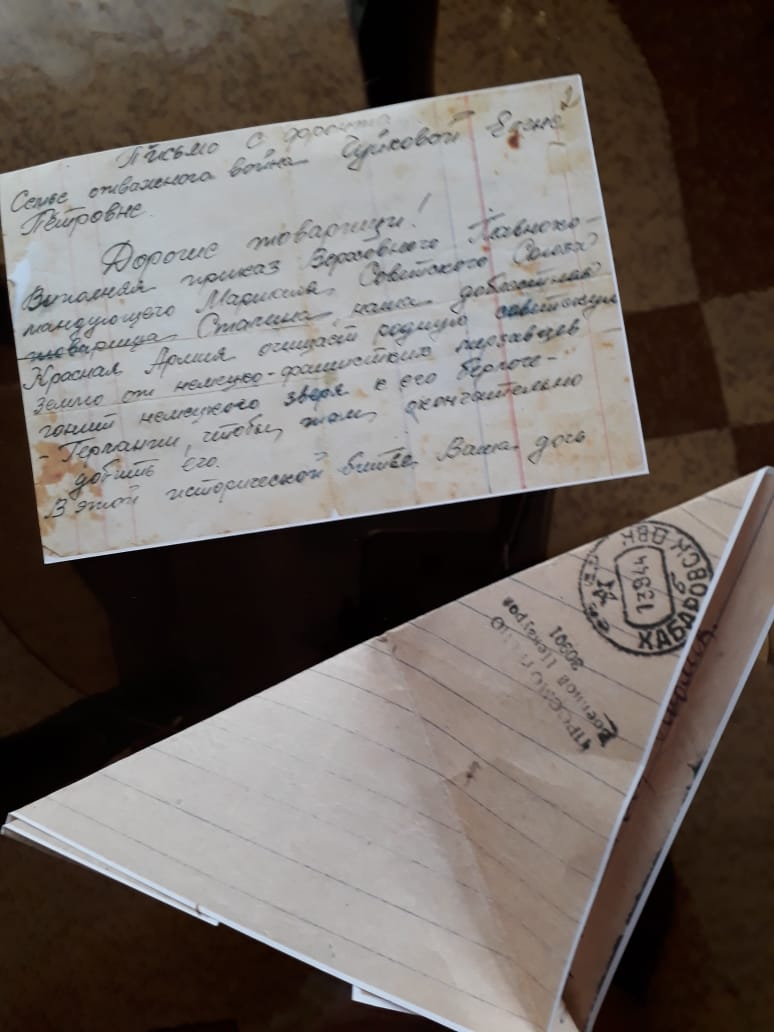 2
Письмо с фронта
Семье отважного война Чуйковой Елене
Петровне.
Дорогие товарищи!
Выполняя приказ Верховного Главноко-
мандующего Маршала Советского Союза
товарища Сталина наша доблестная
Красная Армия очищает родную советскую
землю от немецко-фашистких мерзавцев
гонит немецкого зверя к его берлоге-
- Германии, чтобы там окончательно
добить его.
В этой исторической битве Ваша дочь
ХАБАРОВСК ДВК.
ПРОСМОТРЕНО
Военной Цензурой
20301